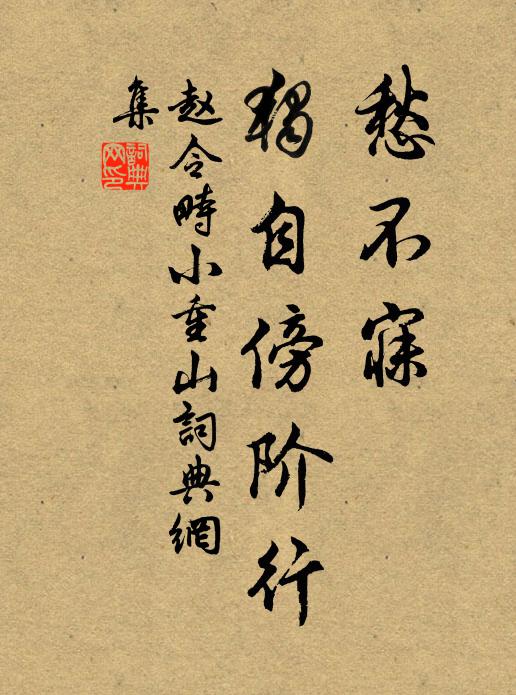 愁不寐
独自傍阶行
赵令畤小重山詞典網
集
詞典网印